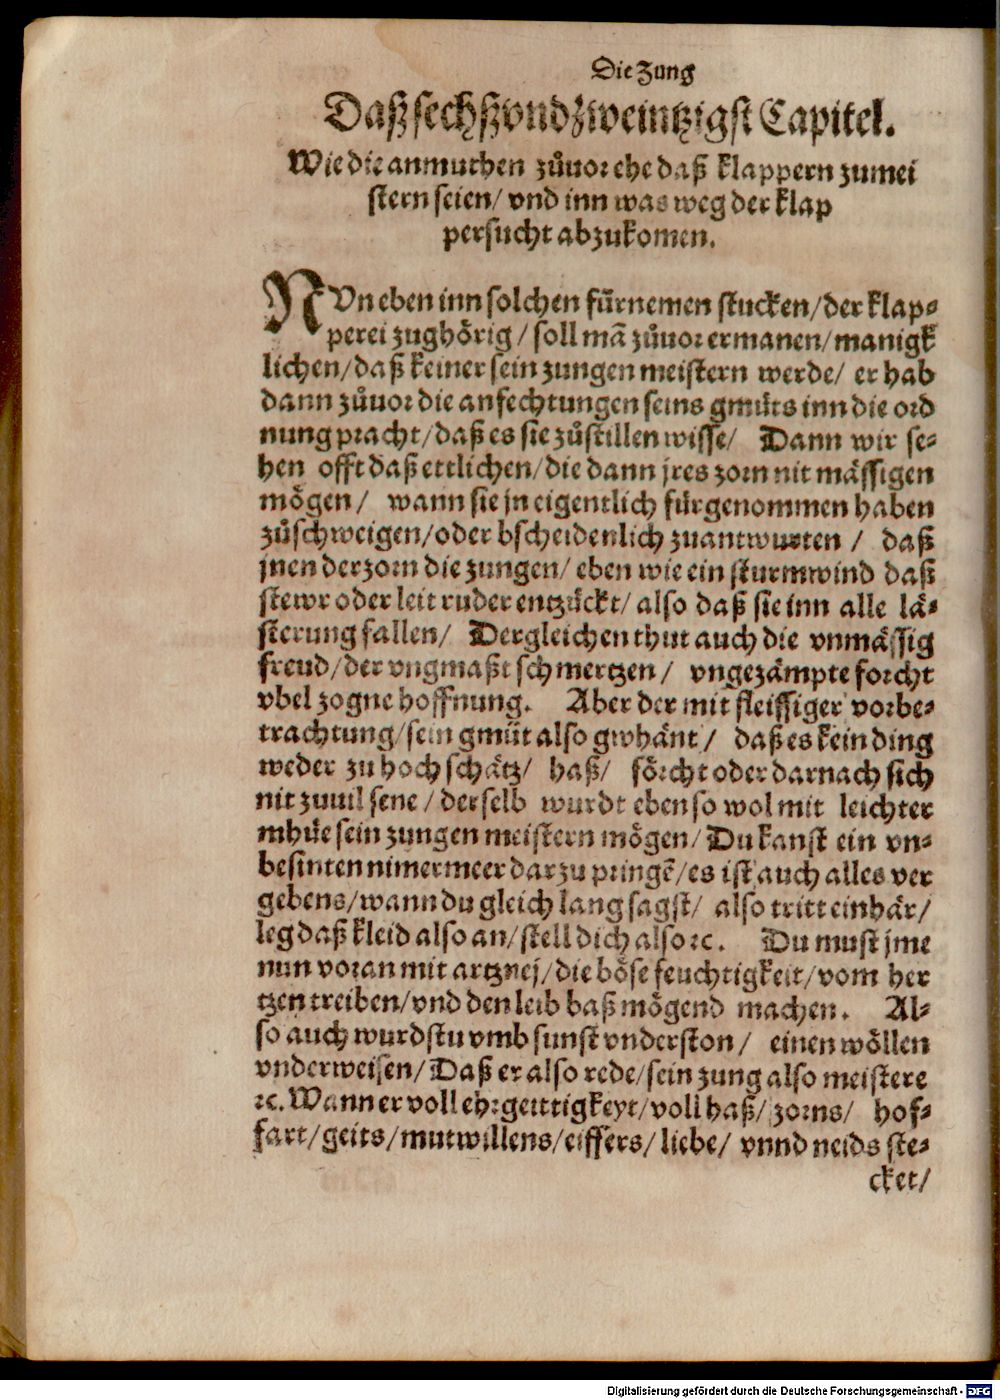 Die Zung
Daß sechß vnd zweintzigst Capitel.
Wie die anmuthen zůuor ehe daß klappern zumei
stern seien/ vnd inn was weg der klap
persucht abzukomen.
NVn eben inn solchen fürnemen stucken/der klap⸗
perei zughörig/ soll mã zůuor ermanen/manigk
lichen/daß keiner sein zungen meistern werde/ er hab
dann zůuor die anfechtungen seins gmüts inn die ord
nung pracht/daß es sie zůstillen wisse/ Dann wir se⸗
hen offt daß ettlichen/die dann jres zorn nit mässigen
mögen/ wann sie jn eigentlich fürgenommen haben
zůschweigen/oder bscheidenlich zuantwurten/ daß
jnen der zorn die zungen/ eben wie ein sturmwind daß
stewr oder leit ruder entzückt/ also daß sie inn alle lä⸗
sterung fallen/ Dergleichen thut auch die vnmässig
freud/der vngmaßt schmertzen/ vngezämpte forcht
vbel zogne hoffnung. Aber der mit fleissiger vorbe⸗
trachtung/sein gmüt also gwhänt/ daß es kein ding
weder zu hoch schätz/ haß/ förcht oder darnach sich
nit zuuil sene/ derselb wurdt eben so wol mit leichter
mhüe sein zungen meistern mögen/ Du kanst ein vn⸗
besinten nimermeer darzu pringẽ/es ist auch alles ver
gebens/wann du gleich lang sagst/ also tritt einhär/
leg daß kleid also an/stell dich also ꝛc. Du must jme
nun voran mit artznej/die böse feuchtigkeit/vom her
tzen treiben/vnd den leib baß mögend machen. Al⸗
so auch wurdstu vmb sunst vnderston/ einen wöllen
vnderweisen/Daß er also rede/sein zung also meistere
ꝛc. Wann er voll ehrgeittigkeyt/voll haß/ zorns/ hof⸗
fart/geits/mutwillens/eiffers/liebe/ vnnd neids ste⸗
cket/
Digitalisierung gefördert durch die Deutsche Forschungsgemeinschaft - DFG